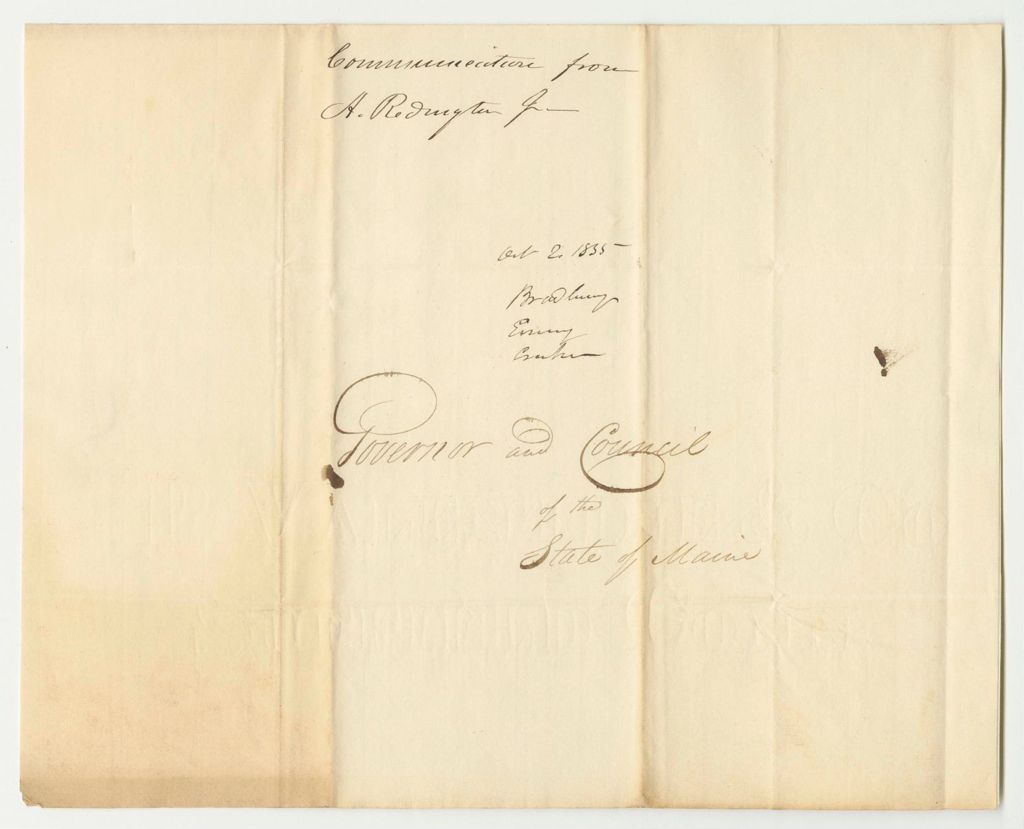 Communication from
A. Redington Jr
Oct 2. 1835
Bradbury
Emery
Governor and Council
of the
State of Maine